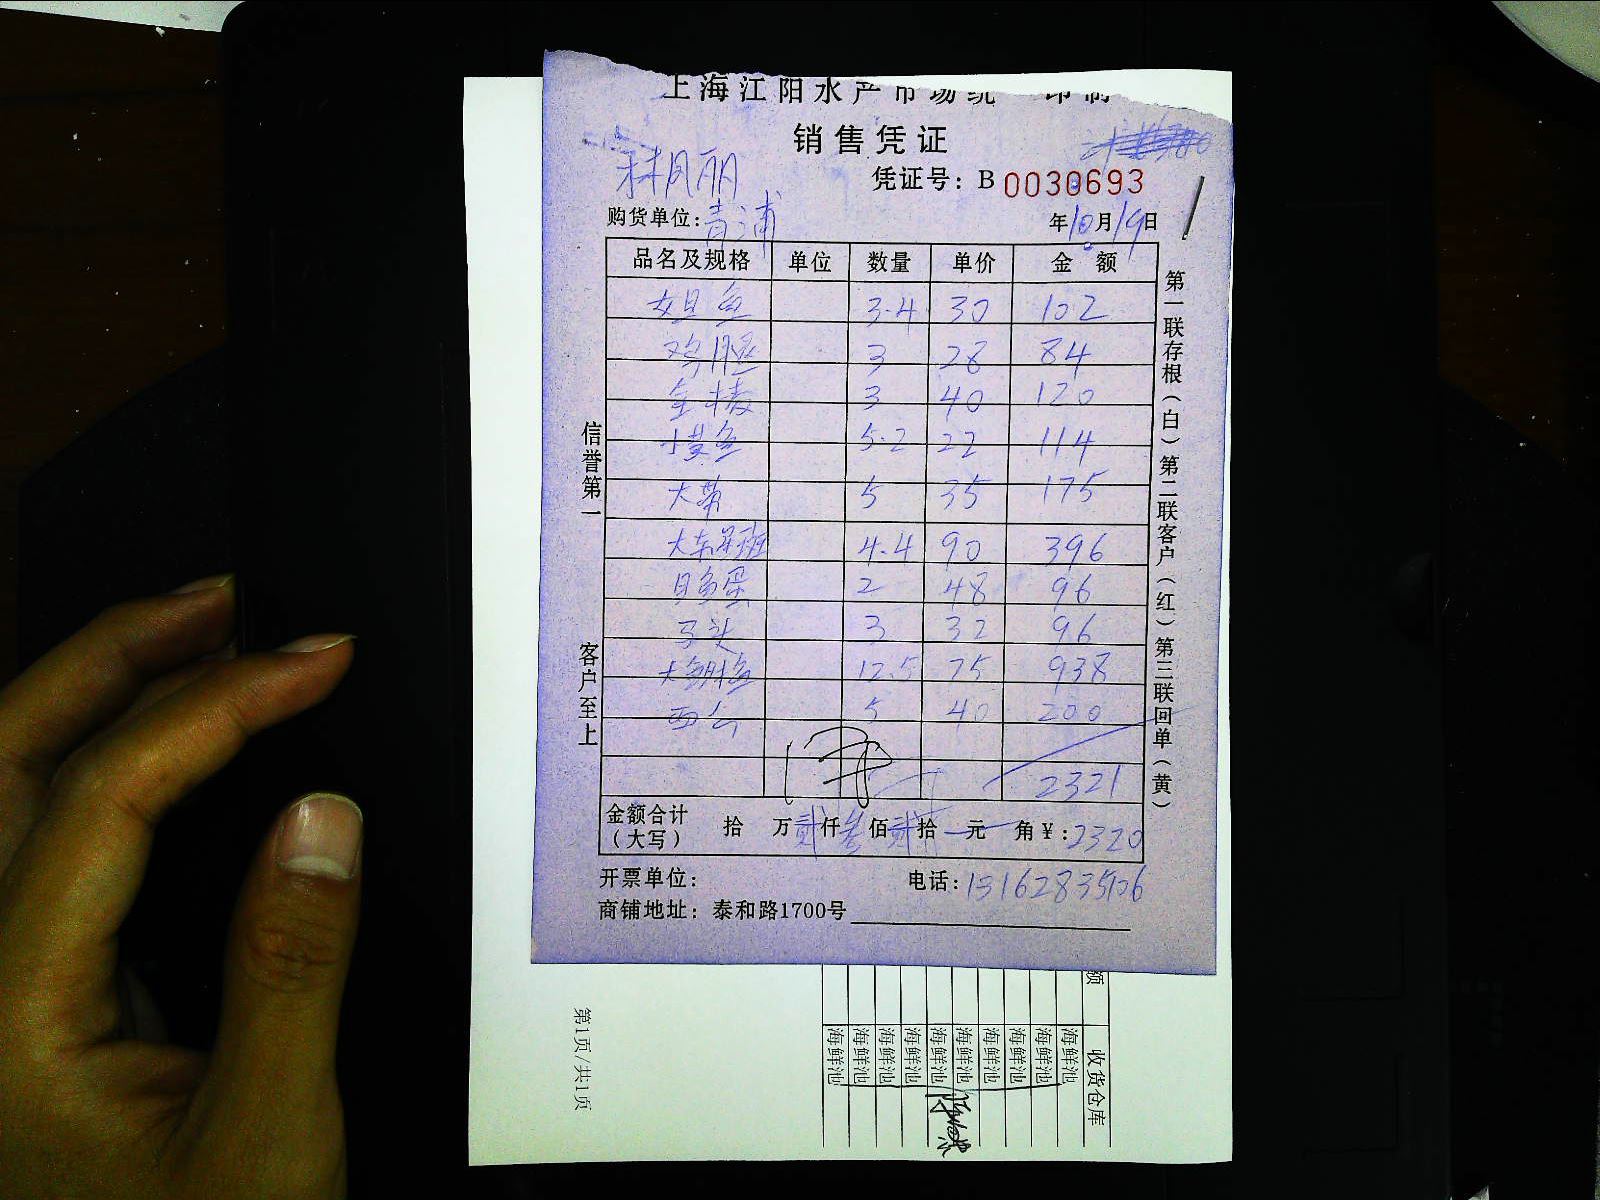 上海江阳水产市场统一印制
销售凭证
凭证号：B 0030693
购货单位：青浦
年10月19日
品名及规格 单位 数量 单价 金额
3.4 30 102
3 28 84
3 40 120
小黄鱼 5.2 22 114
大带 5 35 175
大东星班 4.4 90 396
2 48 96
马头 3 32 96
12.5 75 938
5 40 200
2321
金额合计（大写） 拾 万贰仟叁佰贰拾 元 角￥：2320
开票单位：
电话：15162835106
商铺地址：泰和路1700号
信誉第一
客户至上
第一联存根（白）第二联客户（红）第三联回单（黄）
额
收货仓库
海鲜池
海鲜池
海鲜池
海鲜池
海鲜池
海鲜池
海鲜池
海鲜池
海鲜池
海鲜池
第1页/共1页